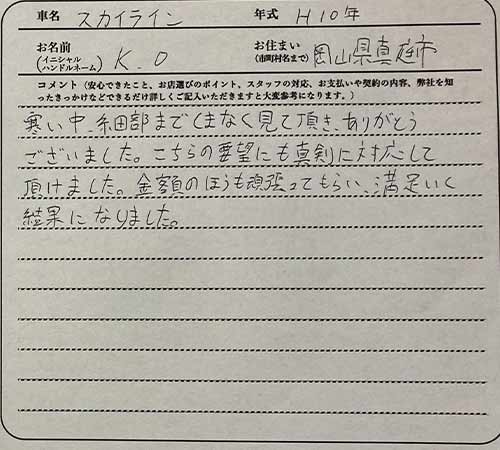 車名 スカイライン 年式 H10年
お名前 (イニシャル ハンドルネーム) K.O お住まい (市町村名まで) 岡山県真庭市
コメント(安心できたこと、お店選びのポイント、スタッフの対応、お支払いや契約の内容、弊社を知
ったきっかけなどできるだけ詳しくご記入いただきますと大変参考になります。)
寒い中、細部までくまなく見て頂き、ありがとう
ございました。こちらの要望にも真剣に対応して
頂けました。金額のほうも頑張ってもらい、満足いく
結果になりました。